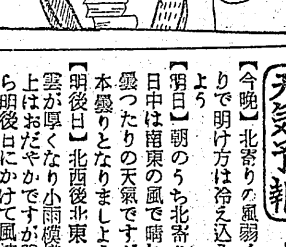 天気予報
【今晩】北寄りの風弱
りで明け方は冷え込
よう
【明日】朝のうち北寄
日中は南東の風で晴
曇つたりの天気です
本曇りとなりましよ
【明後日】北西後北東
雲が厚くなり小雨模様
上はおだやかですが
ら明後日にかけて風